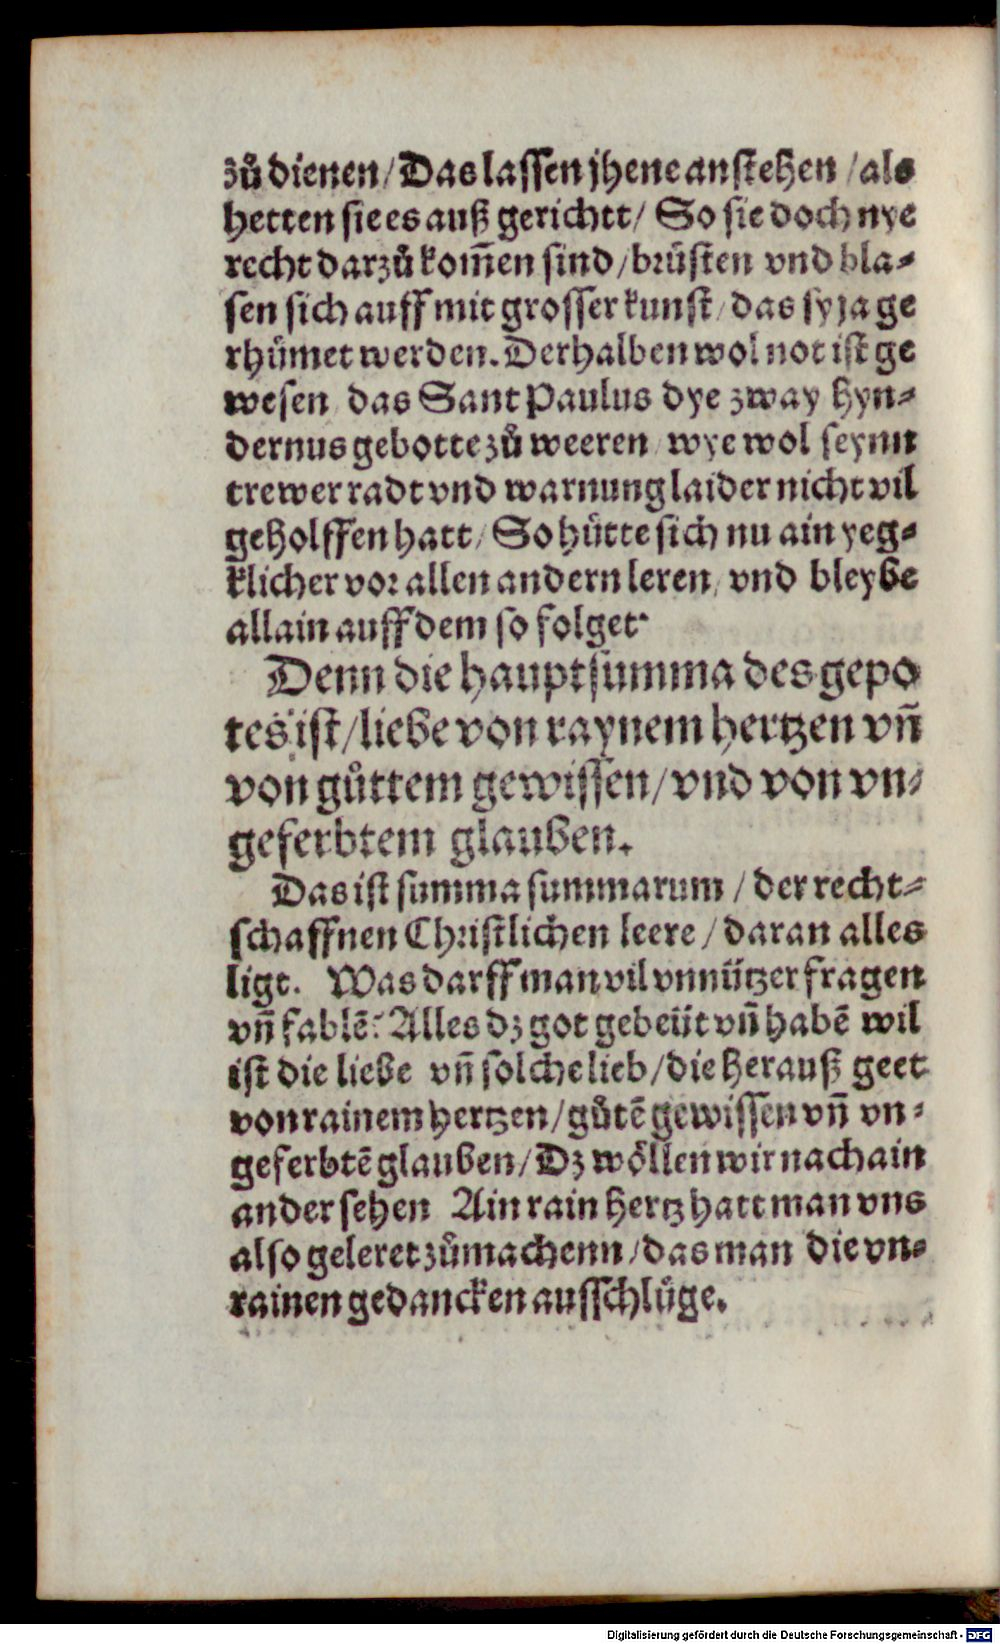 zů dienen / Das lassen jhene anstehen / als
hetten sie es auß gerichtt / So sie doch nye
recht darzů kom̃en sind / brüsten vnd bla⸗
sen sich auff mit grosser kunst / das sy ja ge
rhümet werden. Derhalben wol not ist ge
wesen / das Sant Paulus dye zway hyn⸗
dernus gebotte zů weeren / wye wol seynn
trewer radt vnd warnung laider nicht vil
geholffen hatt / So hütte sich nu ain yeg⸗
klicher vor allen andern leren / vnd bleybe
allain auff dem so folget.
Denn die hauptsumma des gepo
tes ist / liebe von raynem hertzen vn̄
von gůttem gewissen / vnd von vn⸗
geferbtem glauben.
Das ist summa summarum / der recht⸗
schaffnen Christlichen leere / daran alles
ligt. Was darff man vil vnnützer fragen
vn̄ fablē? Alles dz got gebeüt vn̄ habē wil
ist die liebe vn̄ solche lieb / die herauß geet
von rainem hertzen / gůtē gewissen vn̄ vn⸗
geferbtē glauben / Dz wöllen wir nach ain
ander sehen Ain rain hertz hatt man vns
also geleret zůmachenn / das man die vn⸗
rainen gedancken ausschlüge.
Digitalisierung gefördert durch die Deutsche Forschungsgemeinschaft - DFG